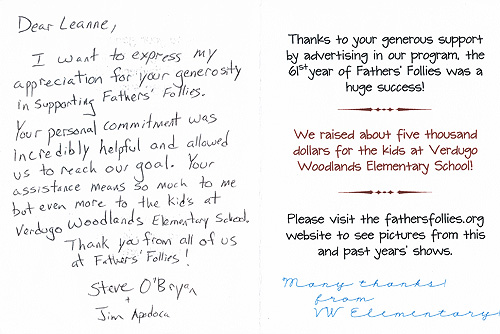 Dear Leanne,
I want to express my
appreciation for your generosity
in supporting Fathers' Follies.
Your personal commitment was
incredibly helpful and allowed
us to reach our goal. Your
assistance means so much to me
but even more to the kids at
Verdugo Woodlands Elementary School.
Thank you from all of us
at Fathers' Follies!
Steve O'Bryan
+
Jim Apodaca
Thanks to your generous support
by advertising in our program, the
61st year of Fathers' Follies was a
huge success!
We raised about five thousand
dollars for the kids at Verdugo
Woodlands Elementary School!
Please visit the fathersfollies.org
website to see pictures from this
and past years' shows.
Many thanks!
from
VW Elementary